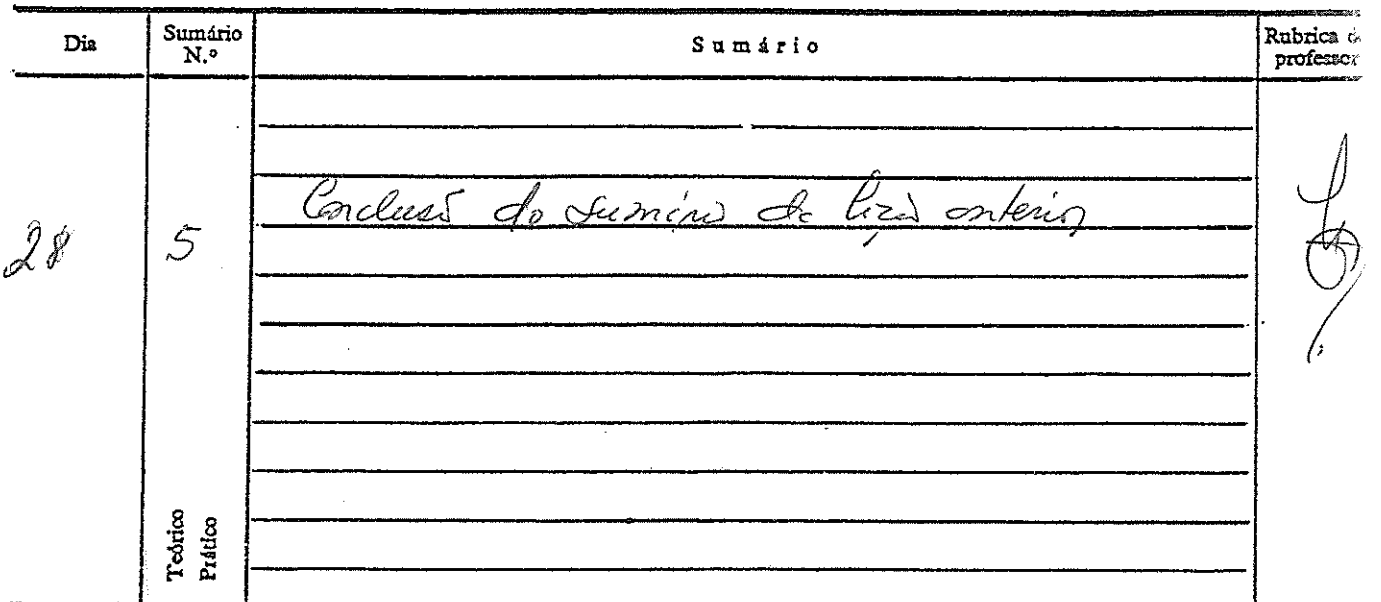 Dia Sumário N.º Sumário Rubrica d professor
28 5 Conclusão do sumário da lição anterior
Teórico
Prático